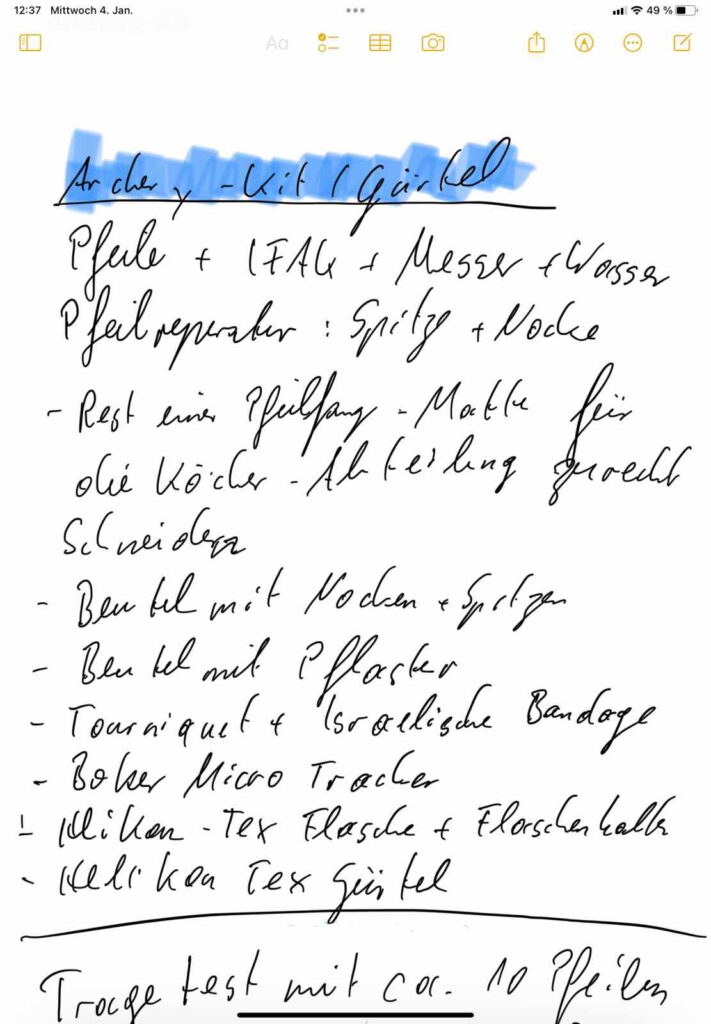 12:37 Mittwoch 4. Jan.
49 %
Aa
Archery-Kit / Gürtel
Pfeile + IFAK + Messer + Wasser
Pfeilreperatur : Spitze + Nocke
- Rest einer Pfeilfang-Matte für
die Köcher-Abteilung zurecht
Schneiden
- Beutel mit Nocken + Spitzen
- Beutel mit Pflaster
- Tourniquet + Israelische Bandage
- Boker Micro Tracker
- Helikon-Tex Flasche + Flaschenhalter
- Helikon Tex Gürtel
Trage test mit ca. 10 Pfeilen